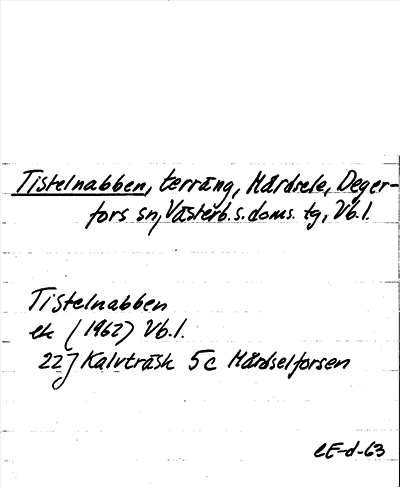 Tistelnabben, terräng, Mårdsele, Deger-
fors sn, Västerb. s. doms. tg, Vb. l.
Tistelnabben
ek (1962) Vb. l.
22J Kalvträsk 5c Mårdselforsen
CE-d-63